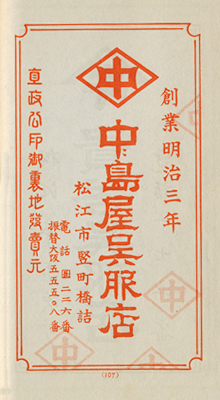 創業明治三年
中
中島屋呉服店
松江市竪町橋詰
電話 二二六番
振替大阪五五五〇八番
直政公印御裏地發賣元
中
中
(107)